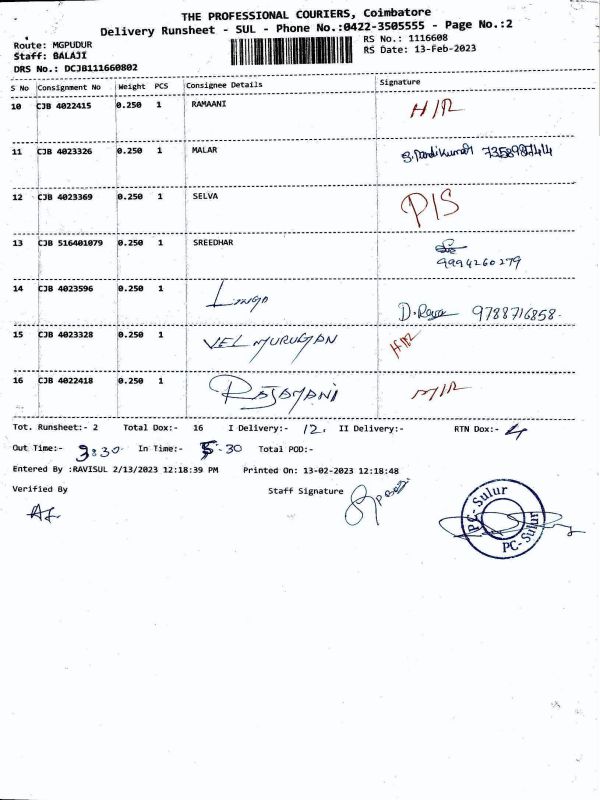 THE PROFESSIONAL COURIERS, Coimbatore
Delivery Runsheet - SUL - Phone No.:0422-3505555 - Page No.:2
Route: MGPUDUR RS No.: 1116608
Staff: BALAJI RS Date: 13-Feb-2023
DRS No.: DCJB111660802
S No Consignment No Weight PCS Consignee Details Signature
10 CJB 4022415 0.250 1 RAMAANI H/R
11 CJB 4023326 0.250 1 MALAR 7358987414
12 CJB 4023369 0.250 1 SELVA P/S
13 CJB 516401079 0.250 1 SREEDHAR
9994260279
14 CJB 4023596 0.250 1 9788716858.
15 CJB 4023328 0.250 1 VELMURUGAN H/R
16 CJB 4022418 0.250 1 RAJAMANI M/R
Tot. Runsheet:- 2 Total Dox:- 16 I Delivery:- 12. II Delivery:- RTN Dox:- 4
Out Time:- 3:30 In Time:- 5:30 Total POD:-
Entered By :RAVISUL 2/13/2023 12:18:39 PM Printed On: 13-02-2023 12:18:48
Verified By Staff Signature
PC-Sulur
PC-Sulur